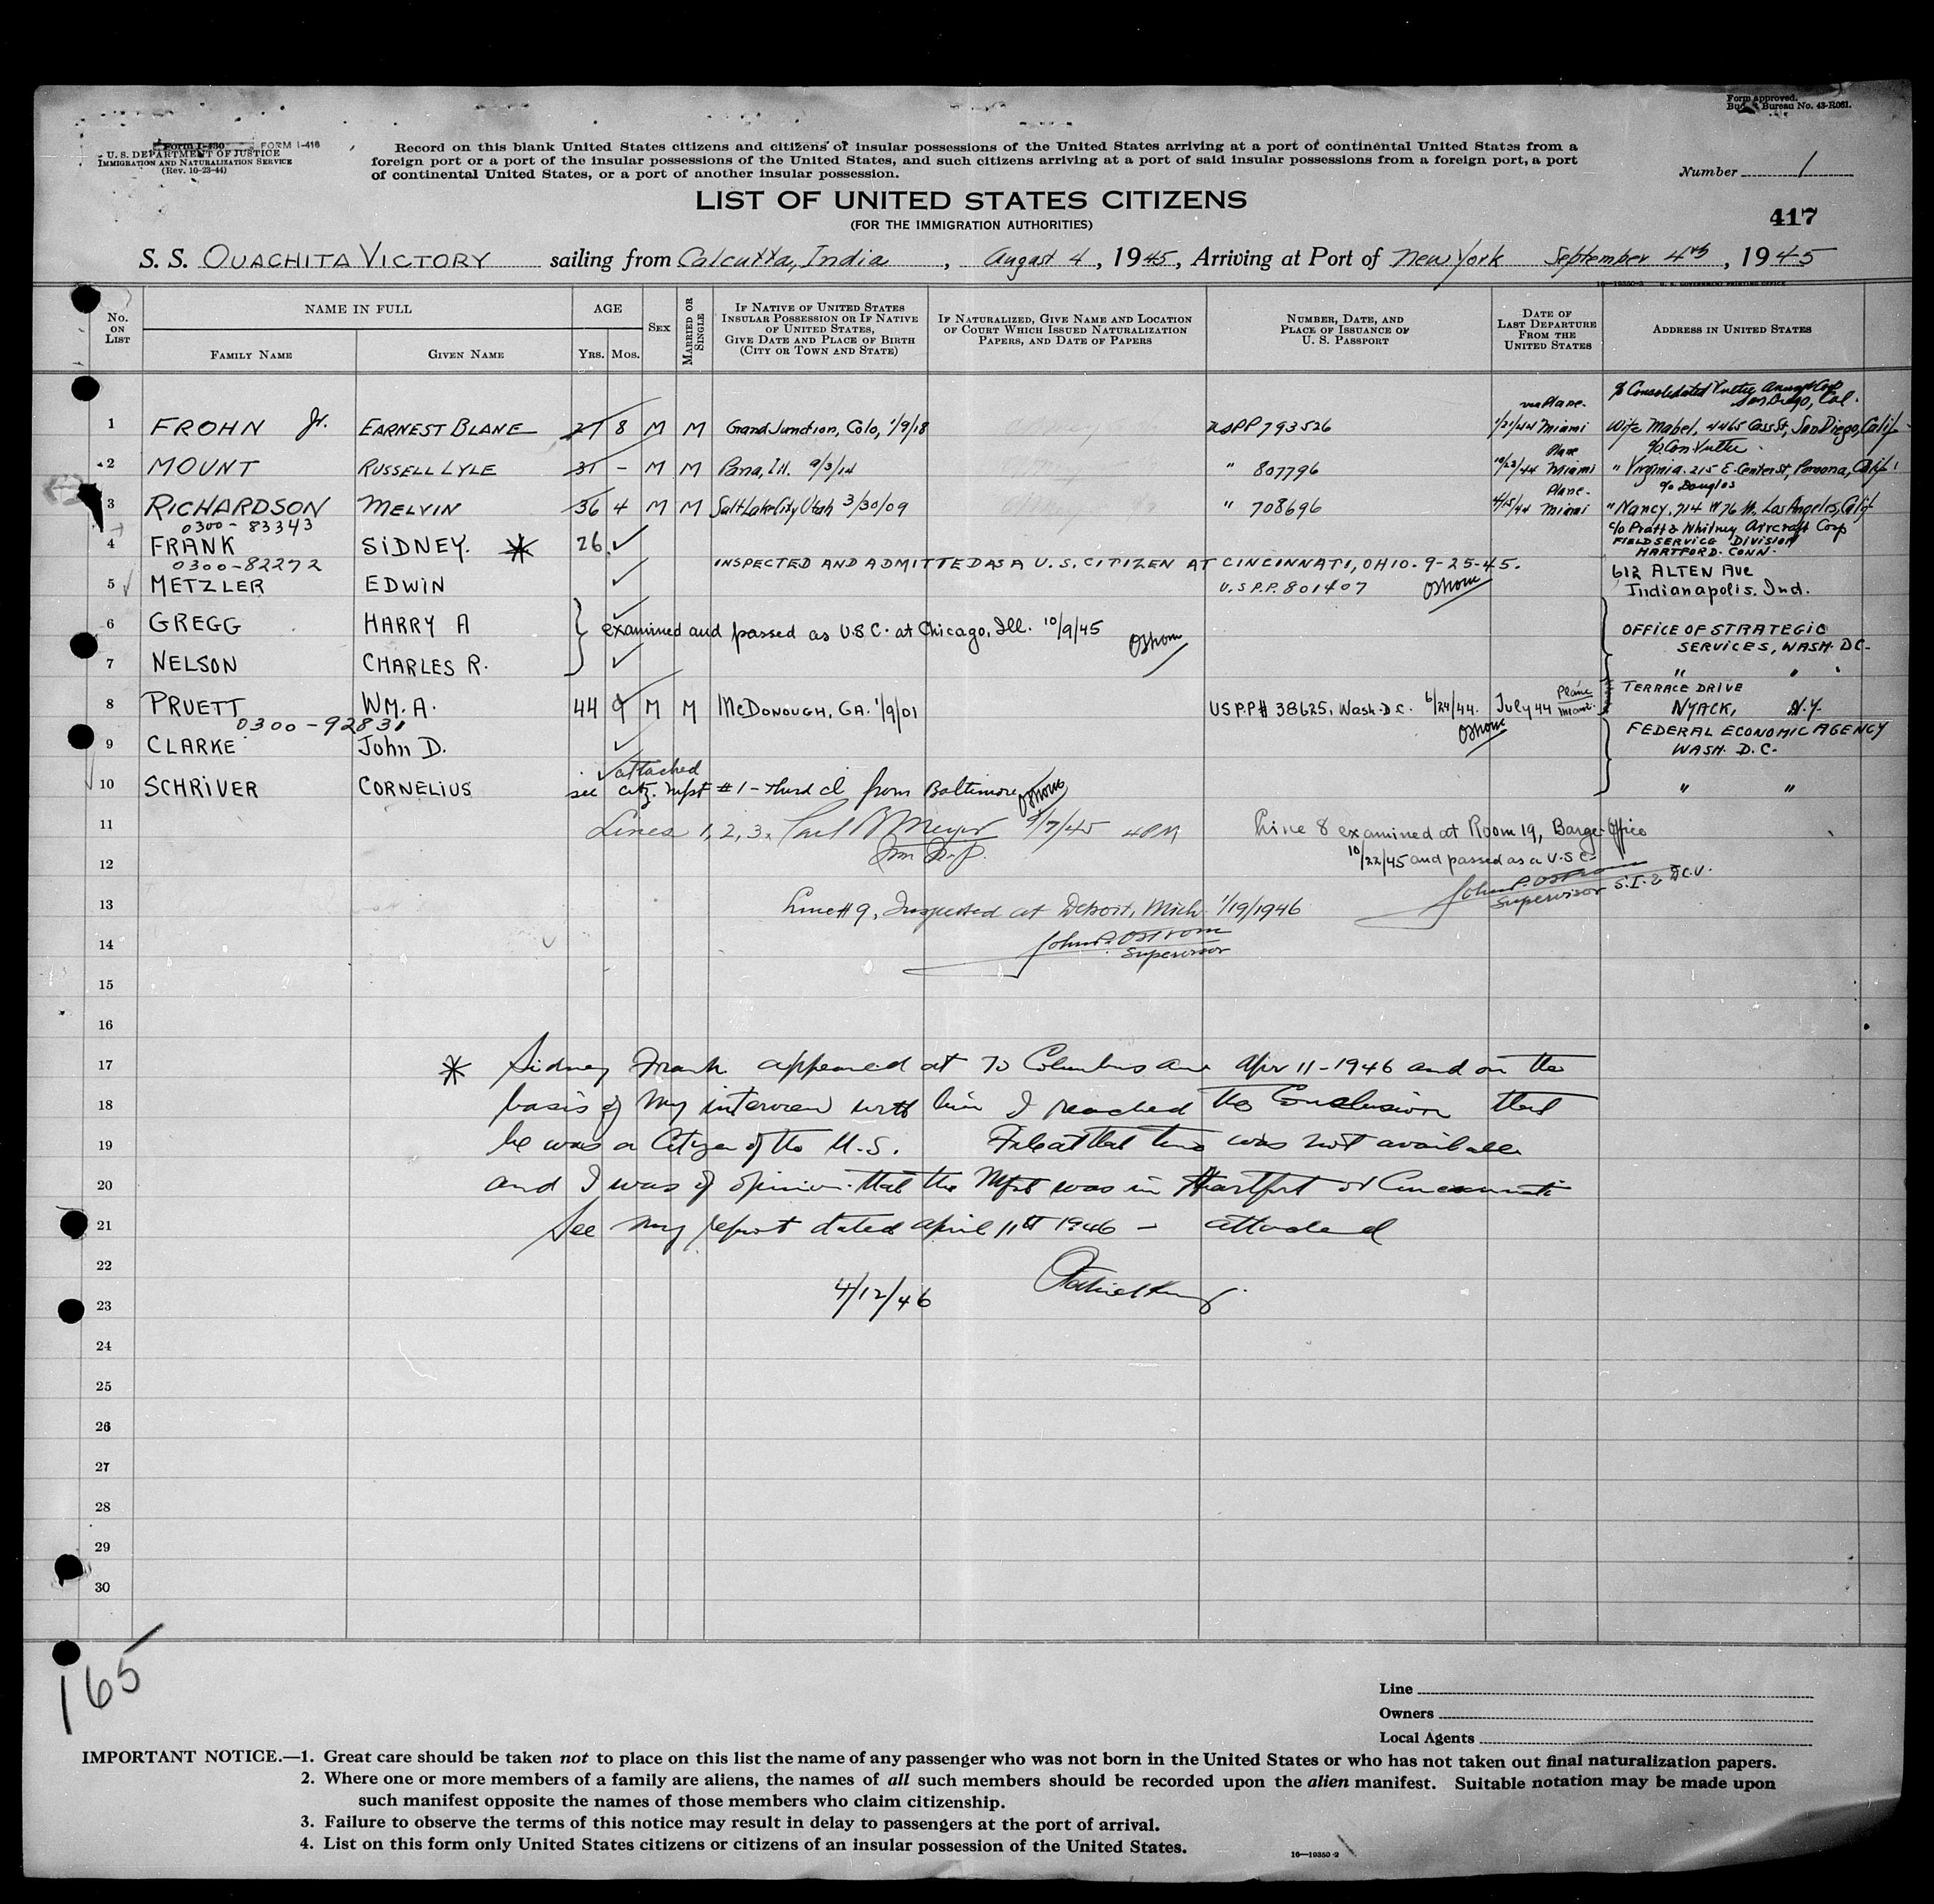 Form approved.
Budget Bureau No. 43-R061.
Form I-430 FORM I-416
U. S. DEPARTMENT OF JUSTICE
IMMIGRATION AND NATURALIZATION SERVICE
(Rev. 10-23-44)
Record on this blank United States citizens and citizens of insular possessions of the United States arriving at a port of continental United States from a
foreign port or a port of the insular possessions of the United States, and such citizens arriving at a port of said insular possessions from a foreign port, a port
of continental United States, or a port of another insular possession.
Number 1
LIST OF UNITED STATES CITIZENS
(FOR THE IMMIGRATION AUTHORITIES)
417
S. S. OUACHITA VICTORY sailing from Calcutta, India, August 4, 1945, Arriving at Port of New York September 4th, 1945
No. ON LIST
NAME IN FULL
FAMILY NAME
GIVEN NAME
AGE
YRS. MOS.
SEX
MARRIED OR SINGLE
IF NATIVE OF UNITED STATES INSULAR POSSESSION OR IF NATIVE OF UNITED STATES, GIVE DATE AND PLACE OF BIRTH (CITY OR TOWN AND STATE)
IF NATURALIZED, GIVE NAME AND LOCATION OF COURT WHICH ISSUED NATURALIZATION PAPERS, AND DATE OF PAPERS
NUMBER, DATE, AND PLACE OF ISSUANCE OF U. S. PASSPORT
DATE OF LAST DEPARTURE FROM THE UNITED STATES
ADDRESS IN UNITED STATES
via Plane. % Consolidated Vultee San Diego, Cal.
1 FROHN Jr. EARNEST BLANE 27 8 M M Grand Junction, Colo, 1/9/18 USPP 793526 1/21/44 Miami Wife Mabel, 4465 Cass St, San Diego, Calif
Plane % Con Vultee
2 MOUNT RUSSELL LYLE 31 - M M Pana, Ill. 9/3/14 " 807796 10/23/44 Miami " Virginia. 215 E. Center St, Pomona, Calif
Plane. % Douglas
3 RICHARDSON MELVIN 36 4 M M Salt Lake City Utah 3/30/09 " 708696 4/15/44 Miami " Nancy, 714 W 76 St, Los Angeles, Calif
0300-83343
4 FRANK SIDNEY. * 26 ✓ c/o Pratt & Whitney Aircraft Corp
FIELD SERVICE DIVISION
HARTFORD. CONN.
0300-82272
INSPECTED AND ADMITTED AS A U. S. CITIZEN AT CINCINNATI, OHIO. 9-25-45.
5 METZLER EDWIN ✓ U.S P.P. 801407 Ostrom 612 ALTEN AVE
Indianapolis. Ind.
6 GREGG HARRY A ✓
examined and passed as U.S C. at Chicago, Ill. 10/9/45 Ostrom
OFFICE OF STRATEGIC
SERVICES, WASH. DC.
7 NELSON CHARLES R. ✓ " "
8 PRUETT WM. A. 44 9 M M McDONOUGH, GA. 1/9/01 US P.P# 38625, Wash. D.C. 6/24/44. July 44 Plane Miami. TERRACE DRIVE
NYACK, N.Y.
Ostrom
0300-92831
9 CLARKE John D. ✓ FEDERAL ECONOMIC AGENCY
WASH. D. C.
10 SCHRIVER CORNELIUS ✓ attached
see citz. mfst #1 - third cl from Baltimore Ostrom " "
11 Lines 1, 2, 3. 9/7/45 4 PM Line 8 examined at Room 19, Barge Office
12 10/22/45 and passed as a U.S C.
John P. Ostrom
Supervisor S.I. &
13 Line #9, Inspected at Detroit, Mich 1/19/1946
14 John P. Ostrom
Supervisor
15
16
17 * Sidney Frank appeared at 70 Columbus Ave Apr 11-1946 and on the
18 basis of my interview with him I reached the conclusion that
19 he was a Citizen of the U.S. File at that time was not available
20 and I was of opinion that the Mfst was in Hartford or Cincinnati
21 See my report dated April 11th 1946 - attached
22
23 4/12/46
24
25
26
27
28
29
30
165
Line
Owners
Local Agents
IMPORTANT NOTICE.—1. Great care should be taken not to place on this list the name of any passenger who was not born in the United States or who has not taken out final naturalization papers.
2. Where one or more members of a family are aliens, the names of all such members should be recorded upon the alien manifest. Suitable notation may be made upon
such manifest opposite the names of those members who claim citizenship.
3. Failure to observe the terms of this notice may result in delay to passengers at the port of arrival.
4. List on this form only United States citizens or citizens of an insular possession of the United States.
16—19350-2